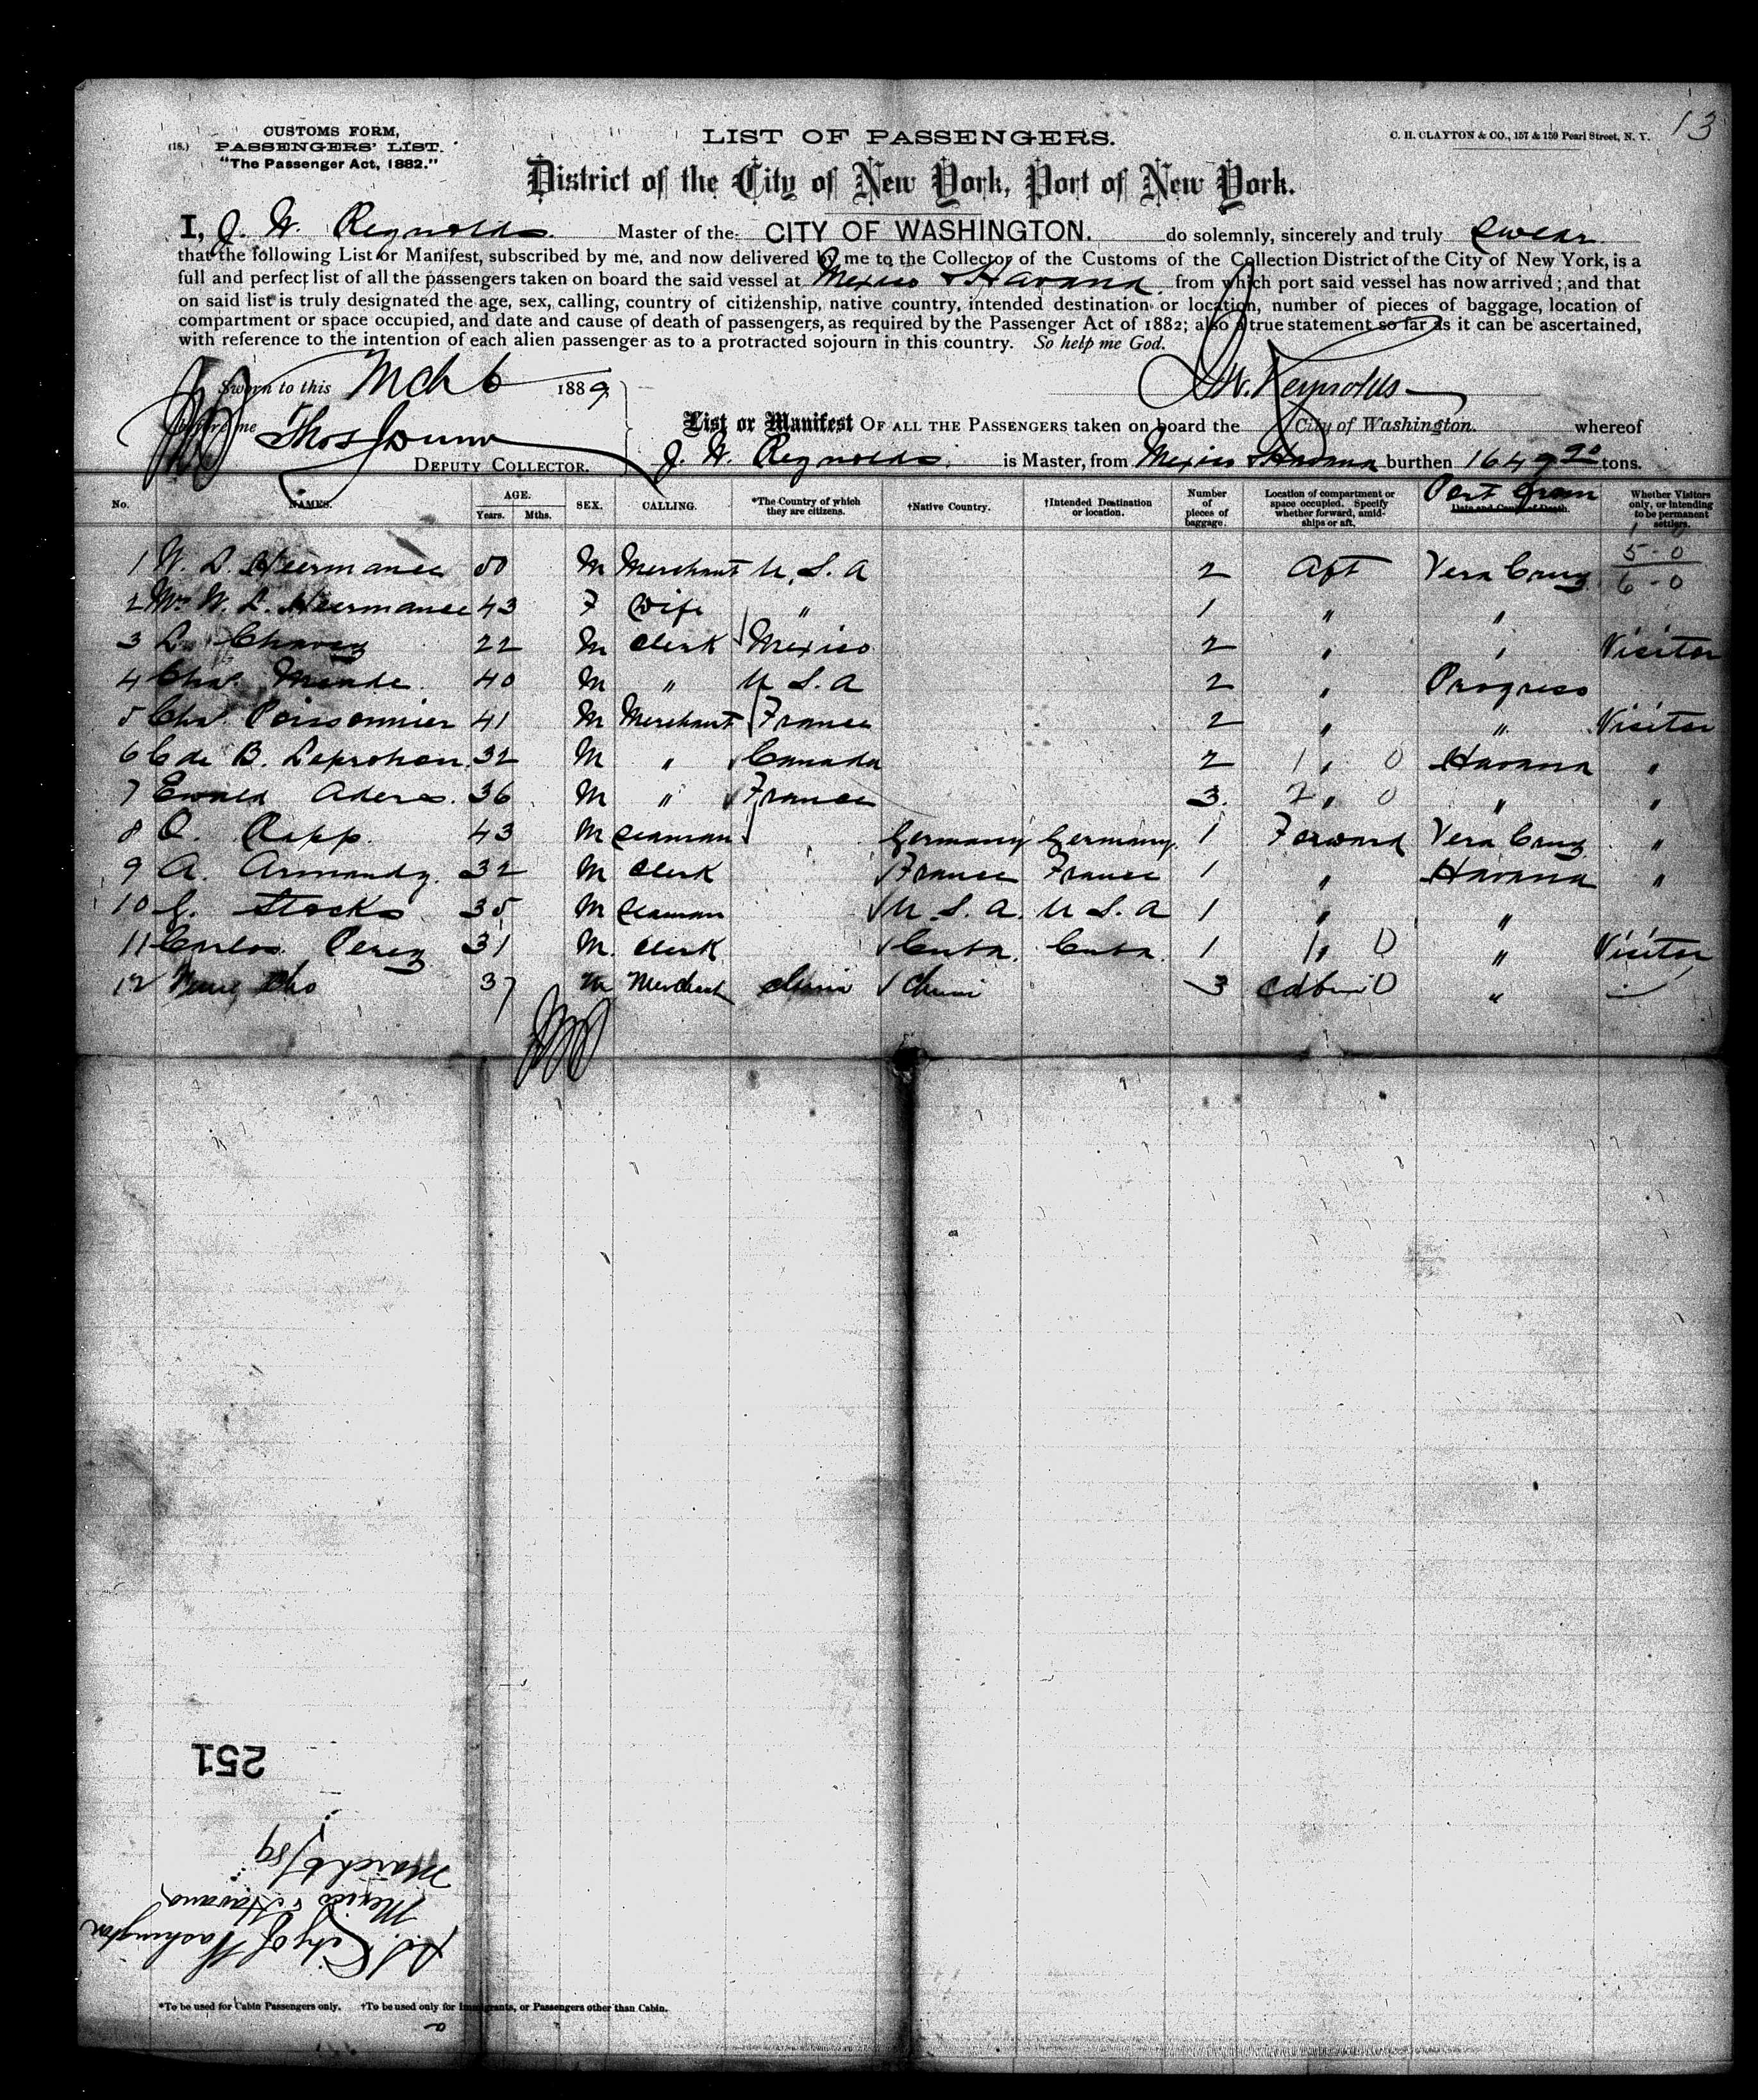 13
CUSTOMS FORM,
(18.) PASSENGERS' LIST.
"The Passenger Act, 1882."
LIST OF PASSENGERS.
C. H. CLAYTON & CO., 157 & 159 Pearl Street, N. Y.
District of the City of New York, Port of New York.
I, J. W. Reynolds Master of the CITY OF WASHINGTON. do solemnly, sincerely and truly swear
that the following List or Manifest, subscribed by me, and now delivered by me to the Collector of the Customs of the Collection District of the City of New York, is a
full and perfect list of all the passengers taken on board the said vessel at Mexico & Havana from which port said vessel has now arrived; and that
on said list is truly designated the age, sex, calling, country of citizenship, native country, intended destination or location, number of pieces of baggage, location of
compartment or space occupied, and date and cause of death of passengers, as required by the Passenger Act of 1882; also a true statement so far as it can be ascertained,
with reference to the intention of each alien passenger as to a protracted sojourn in this country. So help me God.
Sworn to this Mch 6 1889 J. W. Reynolds
before me Thos Dunn
DEPUTY COLLECTOR.
List or Manifest OF ALL THE PASSENGERS taken on board the City of Washington. whereof
J. W. Reynolds is Master, from Mexico & Havana burthen 1649 20 tons.
No. NAMES. AGE. Years. Mths. SEX. CALLING. *The Country of which they are citizens. †Native Country. †Intended Destination or location. Number of pieces of baggage. Location of compartment or space occupied. Specify whether forward, amidships or aft. Port from Date and Cause of Death. Whether Visitors only, or intending to be permanent settlers.
1 - 0
5 - 0
6 - 0
1 W. L. Heermance 50 M Merchant U. S. A 2 Aft Vera Cruz
2 Mrs W. L. Heermance 43 F Wife " 1 " "
3 L. Chavez 22 M Clerk Mexico 2 " " Visitor
4 Chas Meade 40 M " U S. A 2 " Progreso
5 Chs. Poissonnier 41 M Merchant France 2 " " Visitor
6 C de B. Leprohon 32 M " Canada 2 1 " 0 Havana "
7 Ewald Aders. 36 M " France 3. 2 " 0 " "
8 O. Rapp. 43 M Seaman Germany Germany. 1 Forward Vera Cruz "
9 A. Armandy. 32 M Clerk France France 1 " Havana "
10 J. Stocks 35 M Seaman U. S. A. U S. A 1 " "
11 Carlos Perez 31 M. Clerk Cuba. Cuba. 1 1 " 0 " Visitor
12 37 M Merchant China China 3 0 "
251
March 6/89
Mexico & Havana
SS. City of Washington
*To be used for Cabin Passengers only. †To be used only for Immigrants, or Passengers other than Cabin.